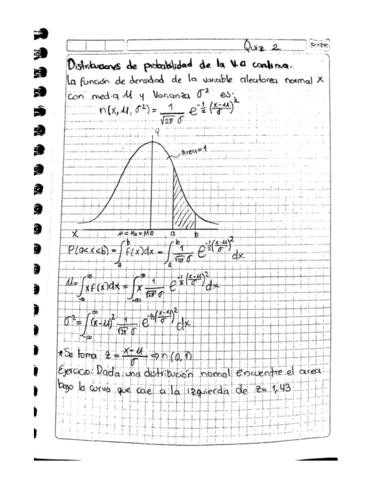 Quiz 2
Scribe
Distribuciones de probabilidad de la V.a continua.
La función de densidad de la variable aleatorea normal X
con media μ y Varianza σ² es:
n(x, μ, σ²) = 1/(√2π σ) e^(-1/2 ((x-μ)/σ)²)
Y
Area=1
X μ=Me=Mo a b
P(a<x<b) = ∫_a^b f(x)dx = ∫_a^b 1/(√2π σ) e^(-1/2((x-μ)/σ)²) dx
μ = ∫_-∞^∞ x f(x)dx = ∫_-∞^∞ x 1/(√2π σ) e^(-1/2((x-μ)/σ)²) dx
σ² = ∫_-∞^∞ (x-μ)² 1/(√2π σ) e^(-1/2((x-μ)/σ)²) dx
*Se toma z = (x-μ)/σ ⇒ n(0,1)
Ejercicio: Dada una distribución normal encuentre el area
bajo la curva que cae a la izquierda de z=1,43